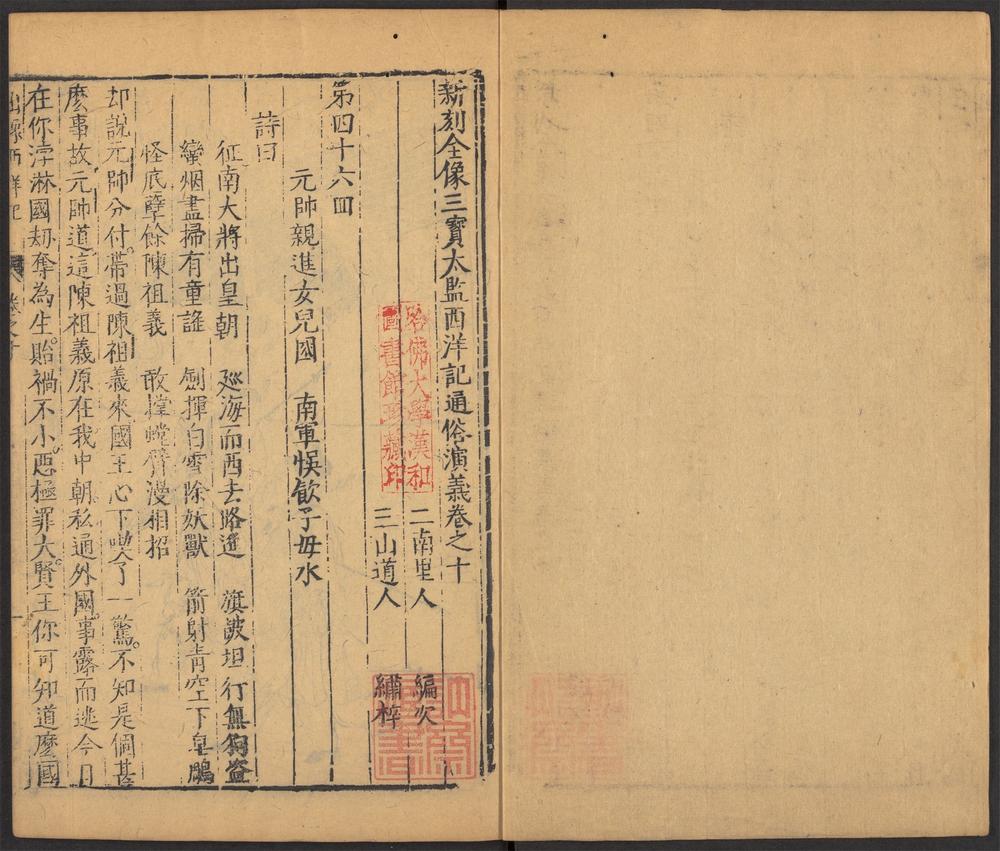 新刻全像三寳太監西洋記通俗演義卷之十
二南里人 編次
三山道人 繡梓
哈佛大學漢和
圖書館珍藏印
第四十六回
元帥親進女兒國 南軍悞飲子母水
詩曰
征南大將出皇朝 廵海而西去路遙 旗皷坦行無狗盗
蠻烟盡掃有童謠 劍揮白雪除妖獸 箭射青空下皂鵰
怪底孽餘陳祖義 敢撑螳臂漫相招
却說元帥分付帶過陳祖義來國王心下喫了一驚不知是個甚
麽事故元帥道這陳祖義原在我中朝私通外國事露而逃今日
在你浡淋國刼奪為生貽禍不小惡極罪大賢王你可知道麽國
出像西洋記 卷之十 一